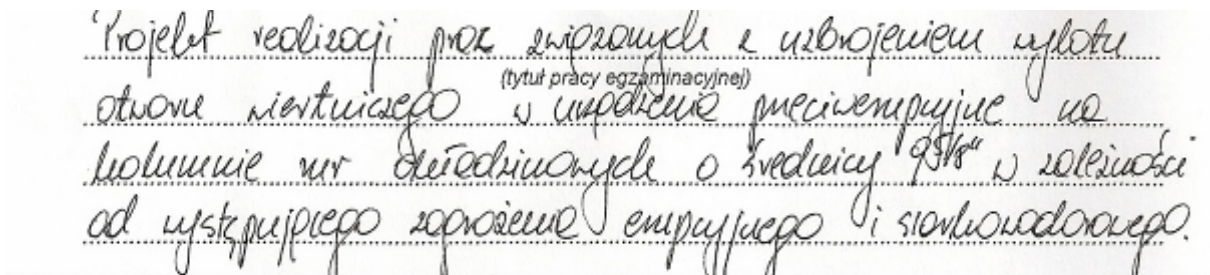 Projekt realizacji prac związanych z uzbrojeniem wylotu
(tytuł pracy egzaminacyjnej)
otworu wiertniczego w urządzenia przeciwerupcyjne na
kolumnie rur okładzinowych o średnicy 9 5/8" w zależności
od występującego zagrożenia erupcyjnego i siarkowodorowego.